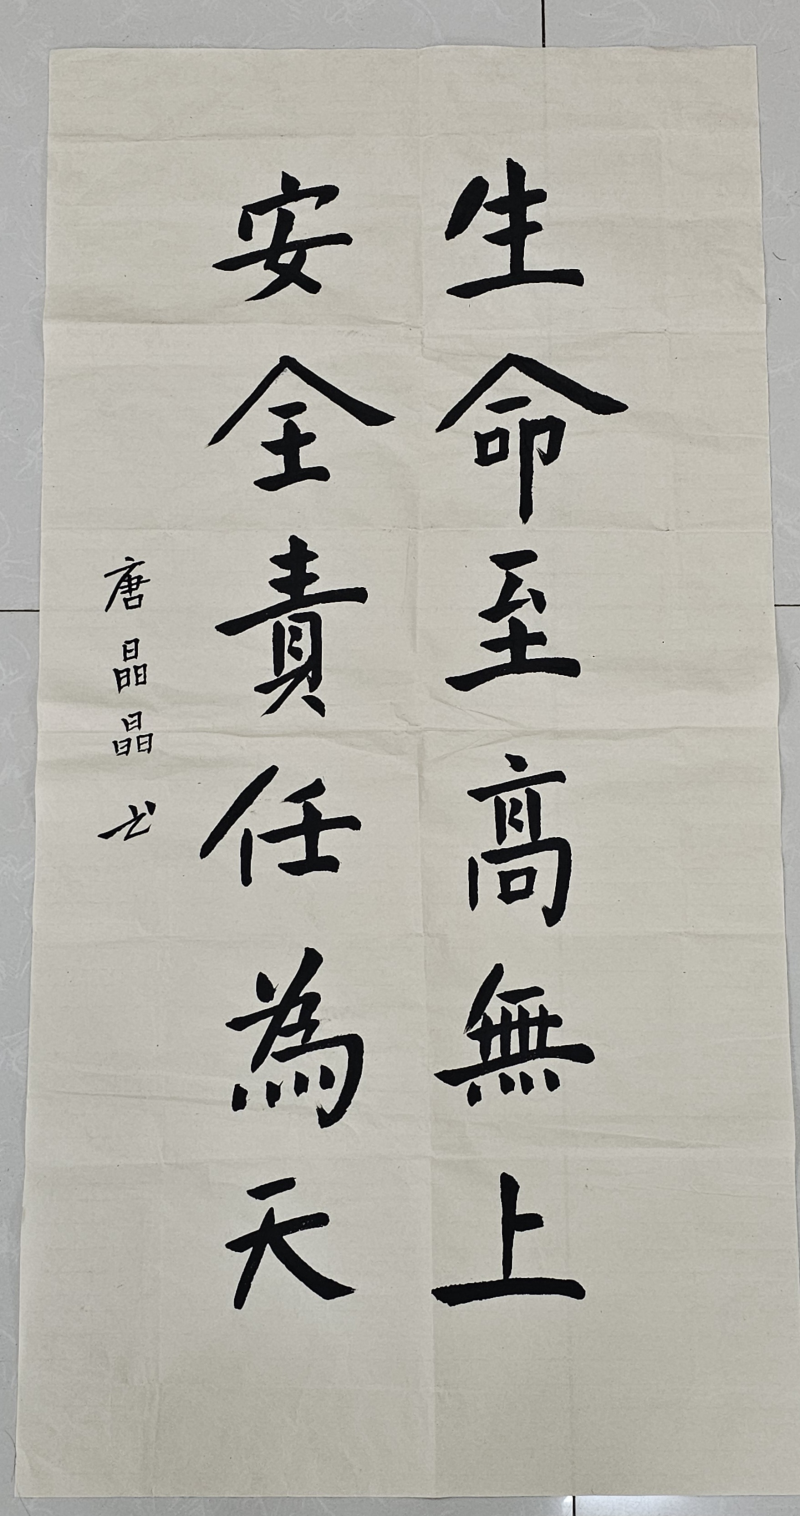 生命至高無上
安全責任為天
唐晶晶书